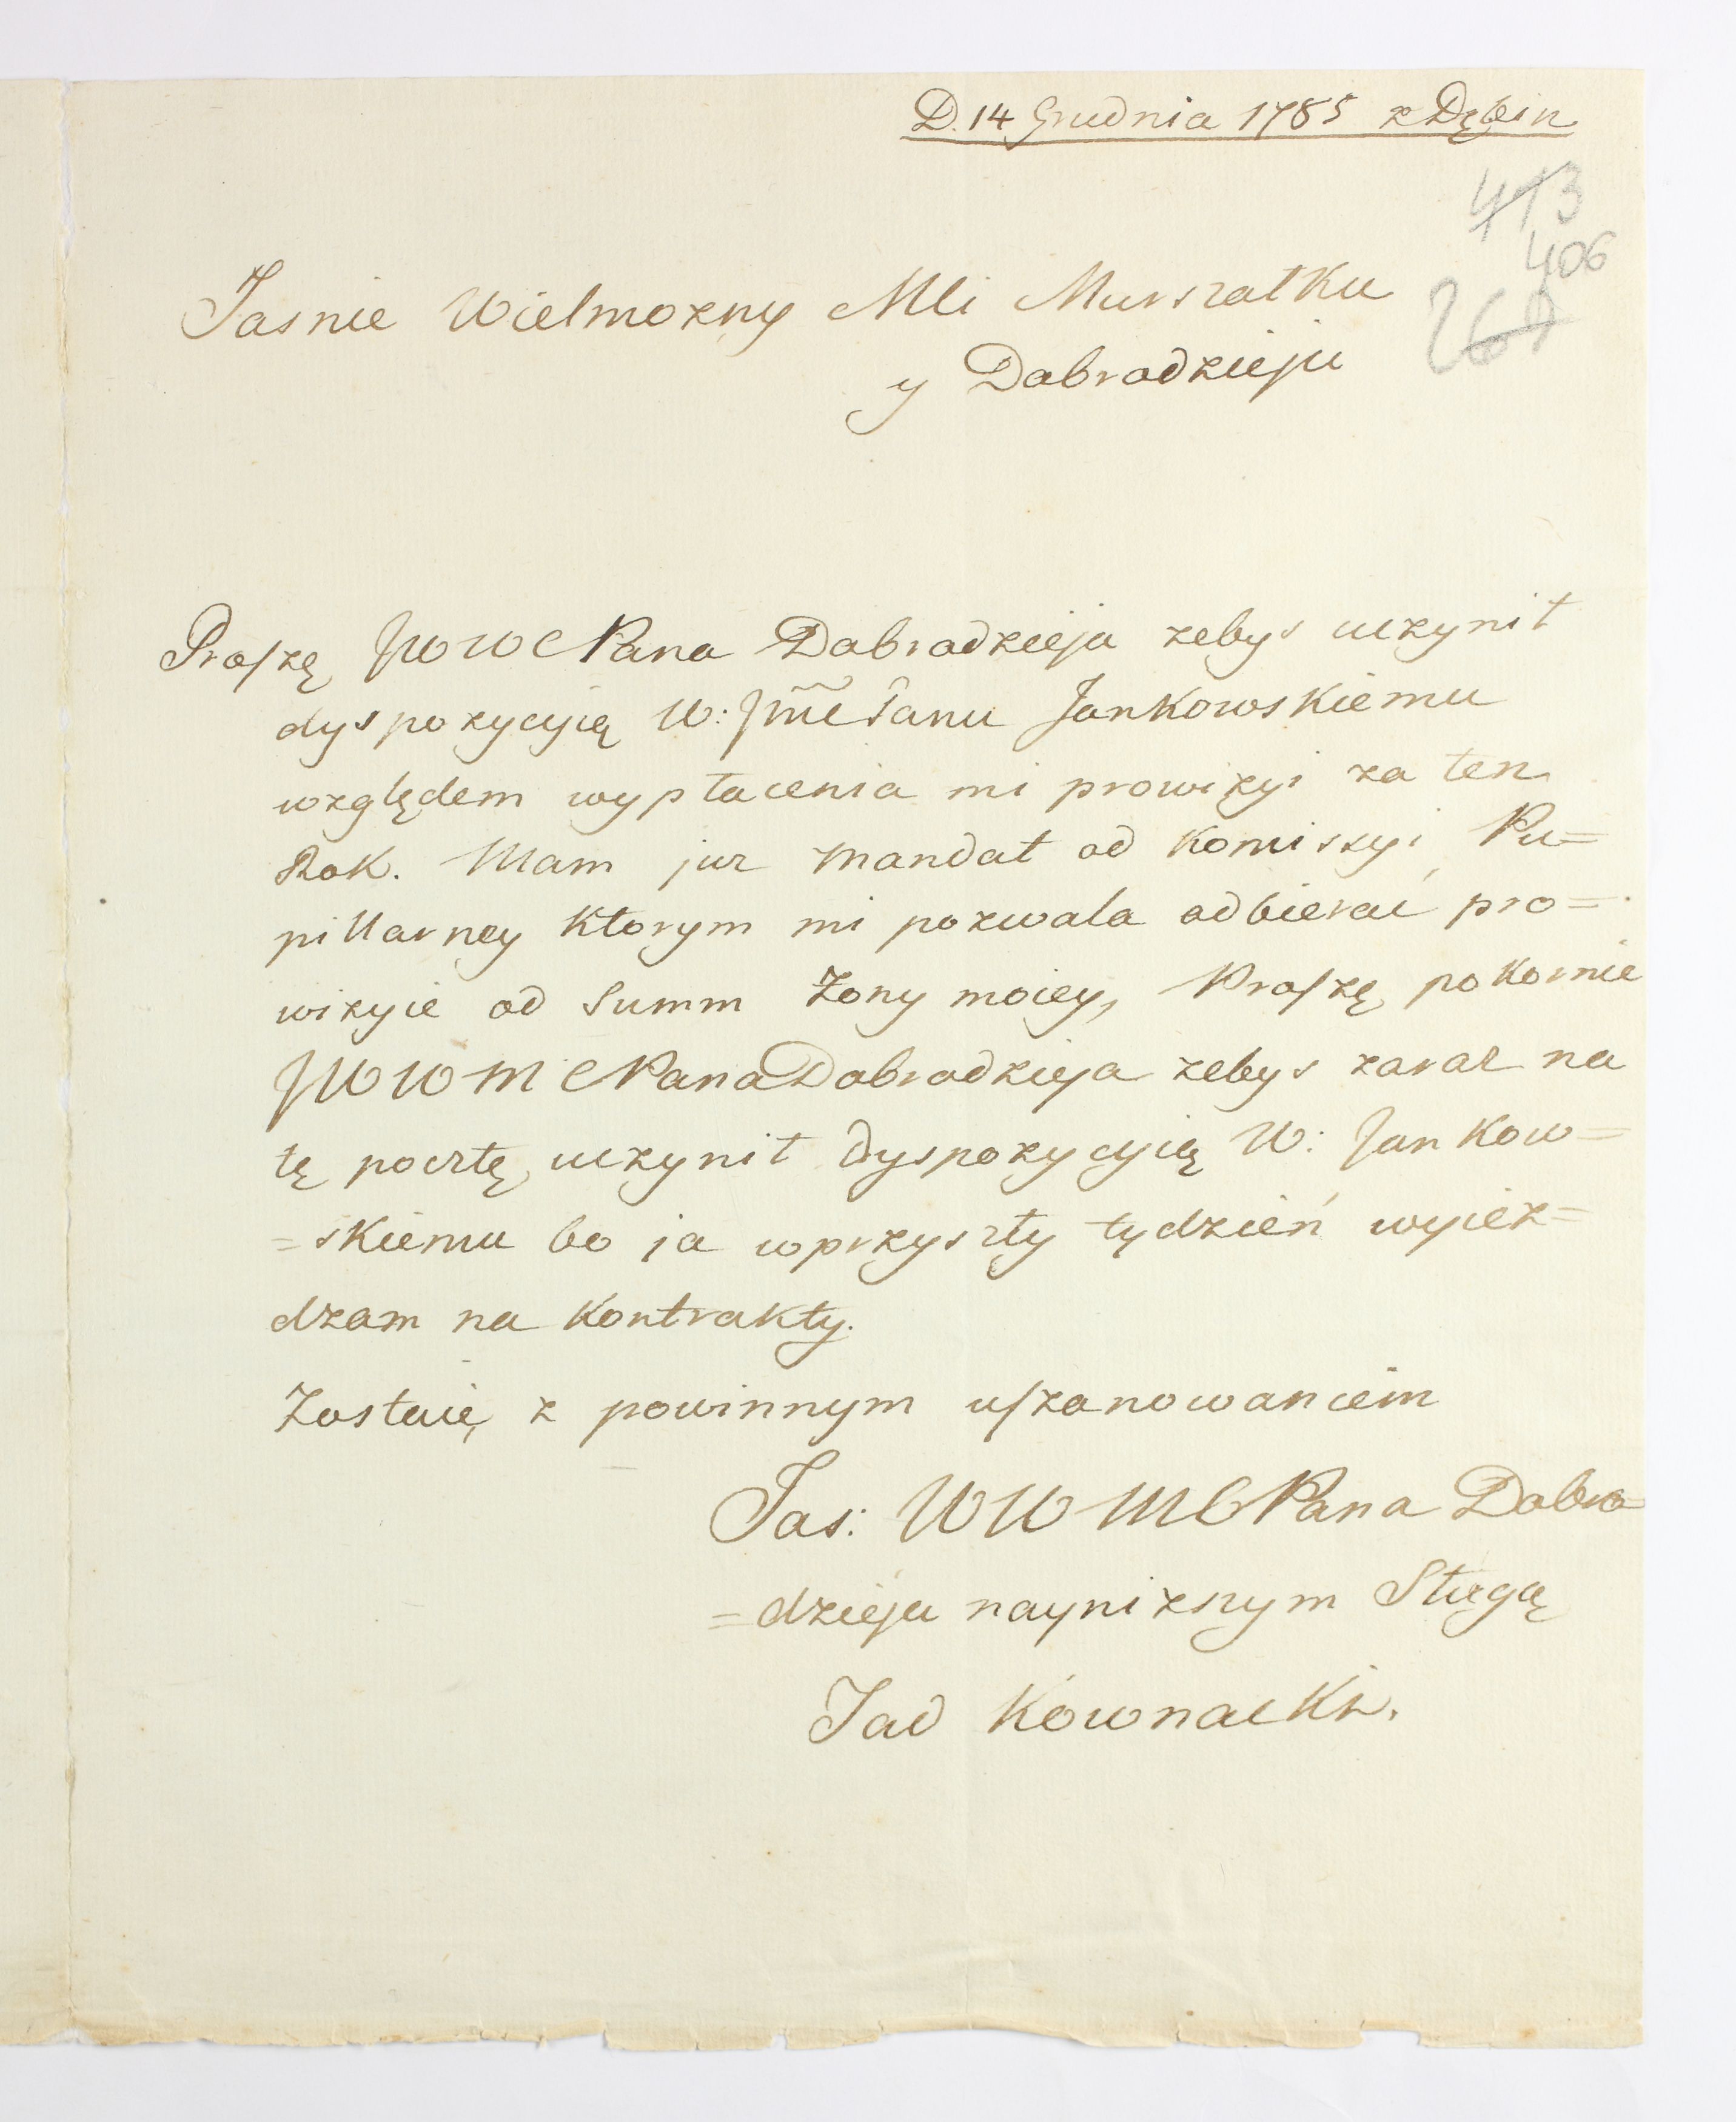 D. 14 Grudnia 1785 z Dębin
413
406
Jasnie Wielmozny Mci Marszałku
y Dobrodzieju
Proszę JWWC Pana Dobrodzieja zebys uczynił
dyspozycyią W: Jmć Panu Jankowskiemu
względem wypłacenia mi prowizyi za ten
Rok. Mam juz mandat od Komiszyi Pu=
pillarney ktorym mi pozwala odbierać pro=
wizyie od Summ Zony moiey, Proszę pokornie
JWWMC Pana Dobrodzieja zebys zaraz na
tę pocztę uczynił dyspozycyią W: Jankow=
=skiemu bo ja wprzyszły tydzień wyiez=
dzam na Kontrakty.
Zostaię z powinnym uszanowaniem
Jas: WWMC Pana Dobro=
=dzieja nayniszym Sługą
Kownacki.